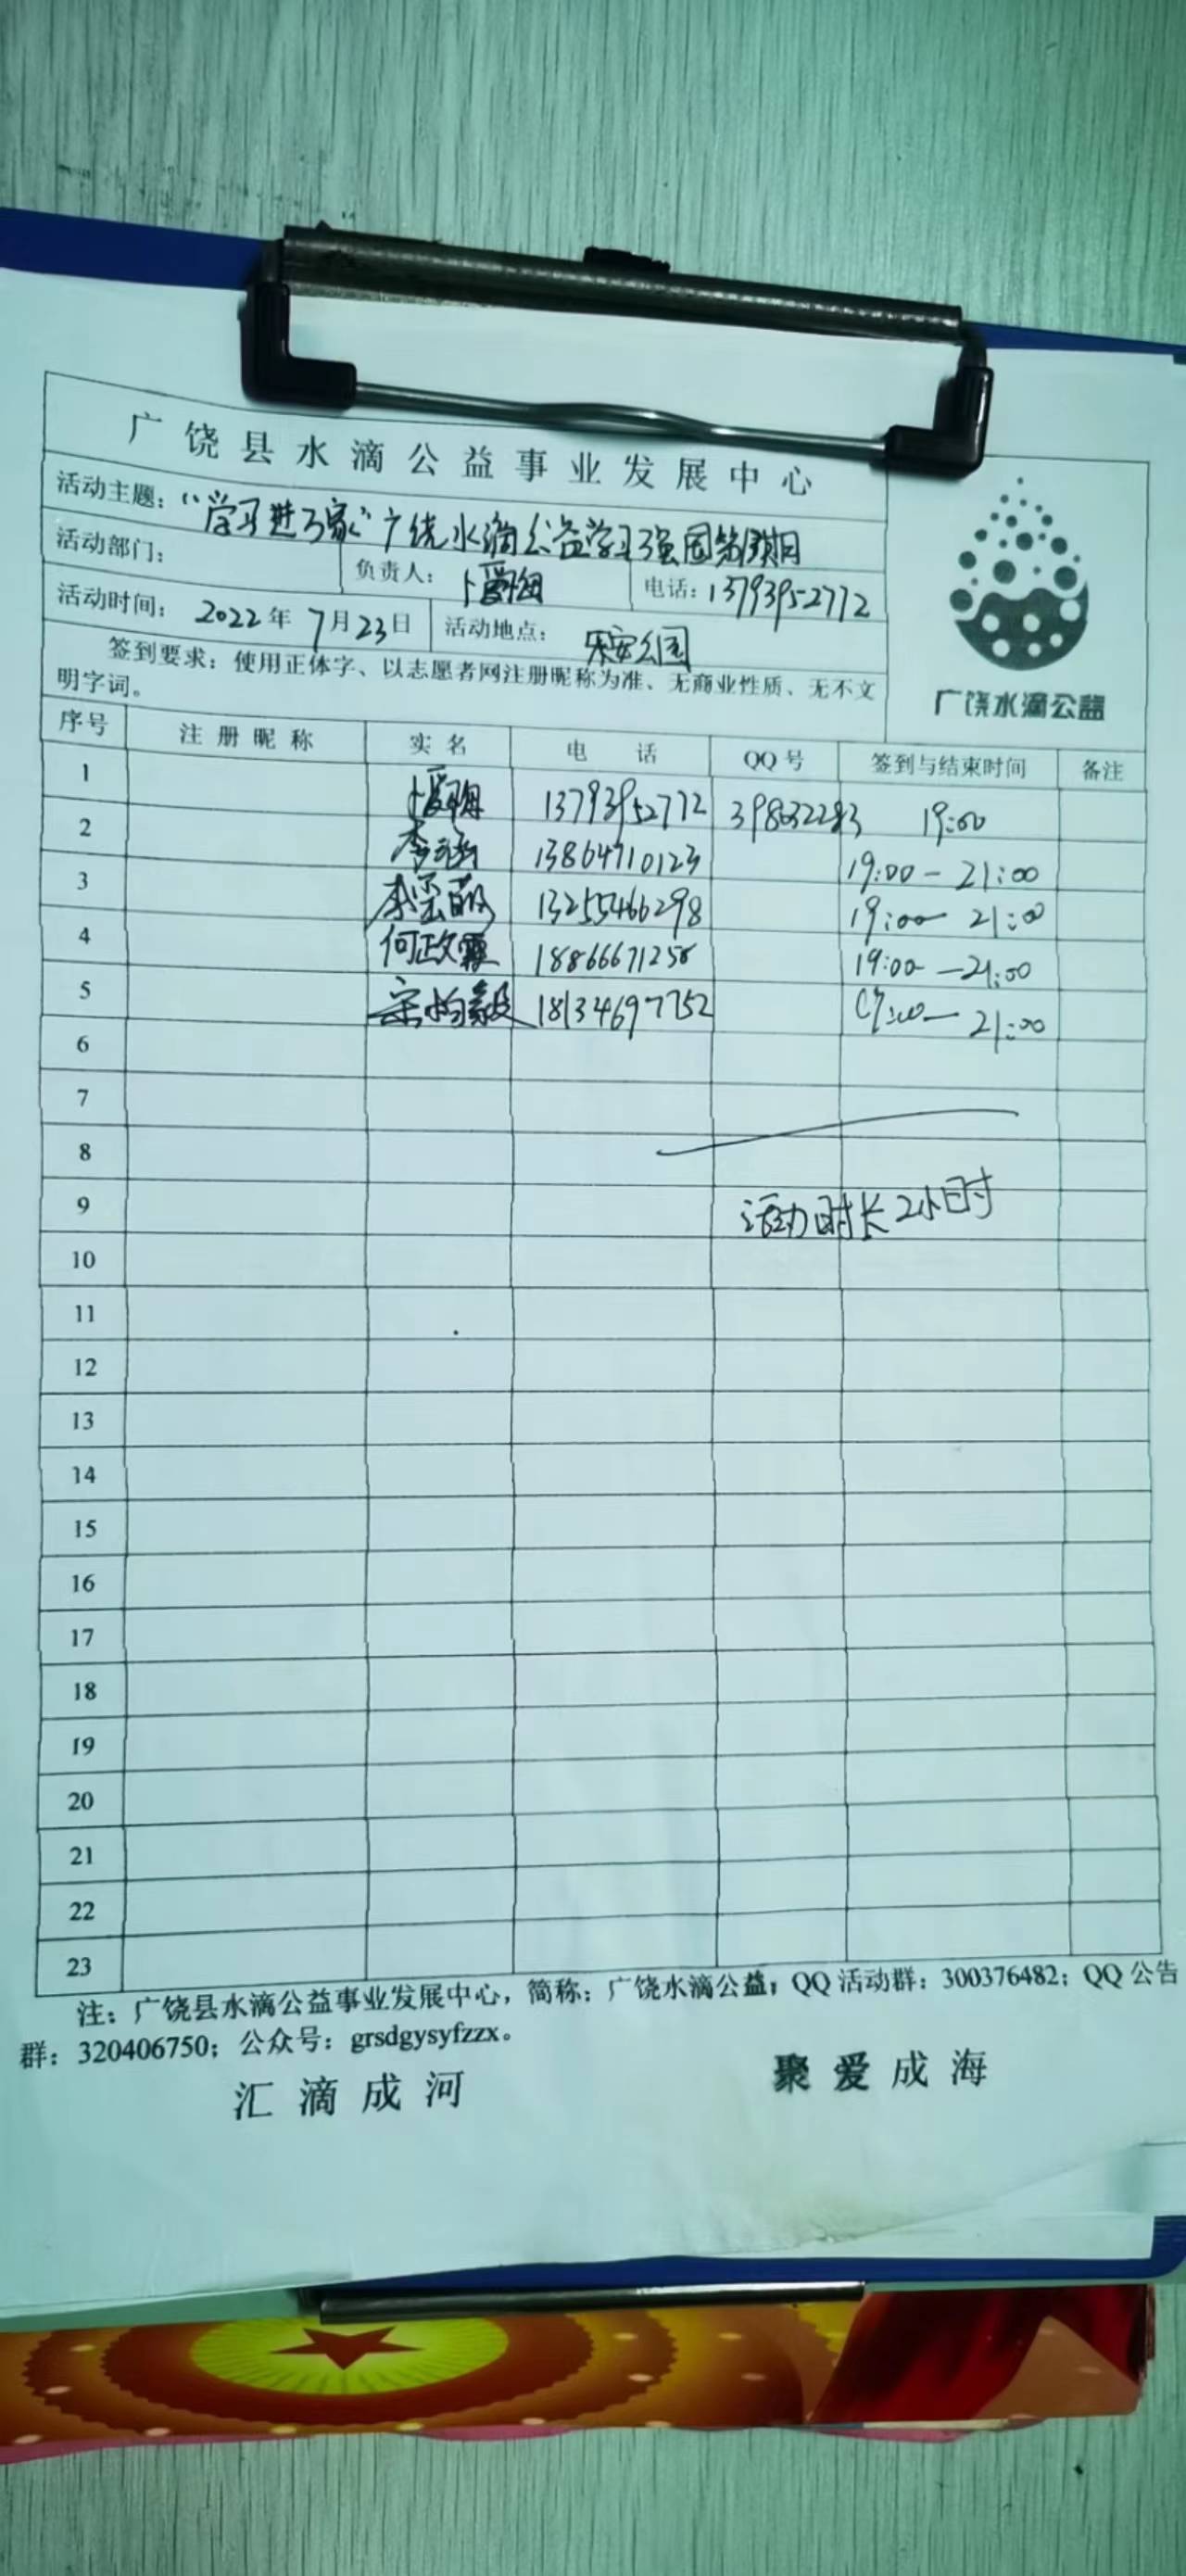 广饶县水滴公益事业发展中心
活动主题：“学习进万家”广饶水滴公益学习强国第 期
活动部门： 负责人：卜爱海 电话：13793952772
活动时间：2022年7月23日 活动地点：乐安公园
签到要求：使用正体字、以志愿者网注册昵称为准、无商业性质、无不文
明字词。
广饶水滴公益
序号 注册昵称 实名 电话 QQ号 签到与结束时间 备注
1 卜爱海 13793952772 19:00
2 李 13864710123 19:00-21:00
3 李 萌 13255466298 19:00-21:00
4 何政霖 188666712 19:00-21:00
5 宋 毅 18134697752 21:00
6
7
8
9 活动时长2小时
10
11
12
13
14
15
16
17
18
19
20
21
22
23
注：广饶县水滴公益事业发展中心，简称：广饶水滴公益；QQ活动群：300376482；QQ公告
群：320406750；公众号：grsdgysyfzzx。
汇滴成河 聚爱成海